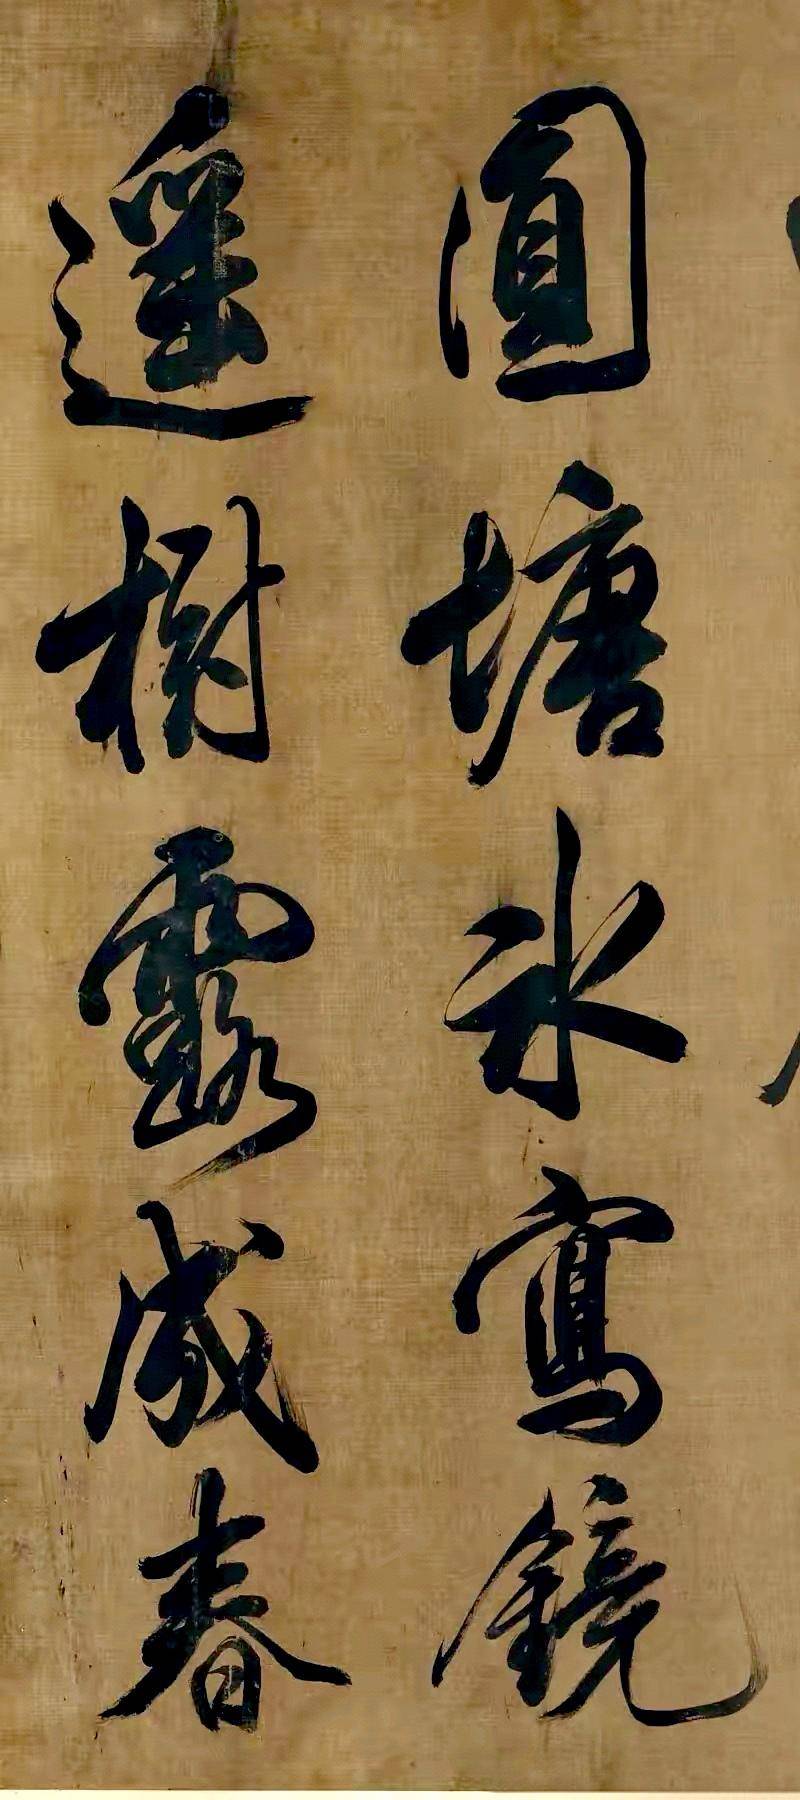 圓塘冰寫鏡
遥樹露成春